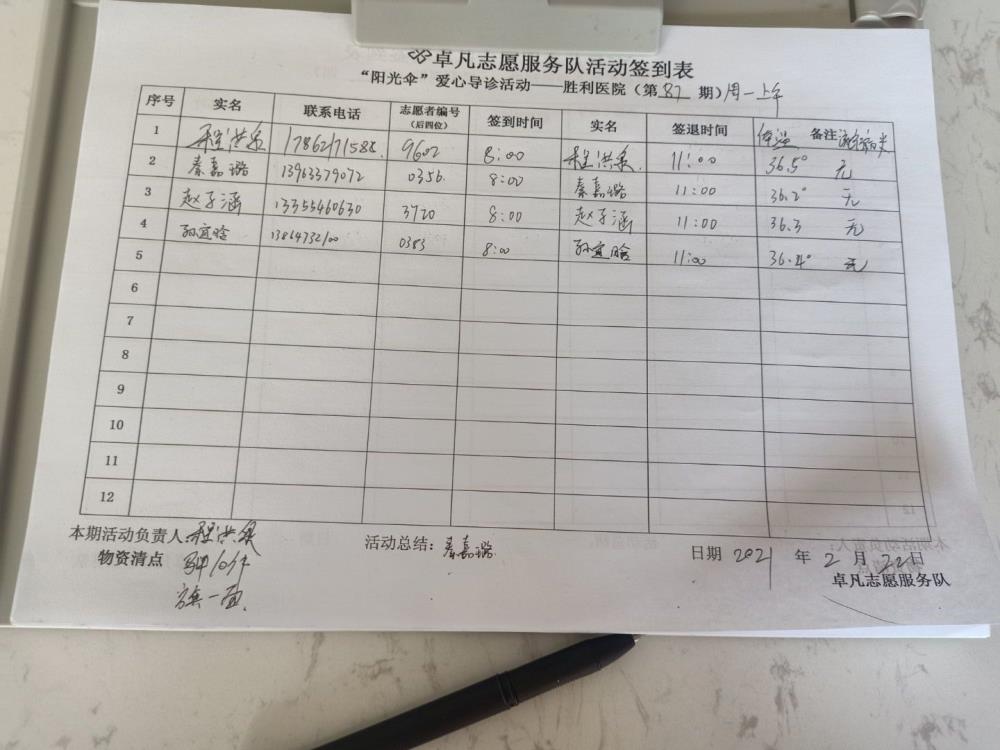 卓凡志愿服务队活动签到表
“阳光伞”爱心导诊活动——胜利医院（第 87 期）周一上午
序号 实名 联系电话 志愿者编号（后四位） 签到时间 实名 签退时间 体温 备注
1 程洪泉 17862171588 9602 8:00 程洪泉 11:00 36.5° 无
2 秦嘉璐 13963379072 0356 8:00 秦嘉璐 11:00 36.2° 无
3 赵子涵 13355460630 3720 8:00 赵子涵 11:00 36.3 无
4 孙宜晗 13864732100 0383 8:00 孙宜晗 11:00 36.4° 无
5
6
7
8
9
10
11
12
本期活动负责人：程洪泉 活动总结：秦嘉璐 日期 2021 年 2 月 22 日
物资清点 卓凡志愿服务队
旗一面